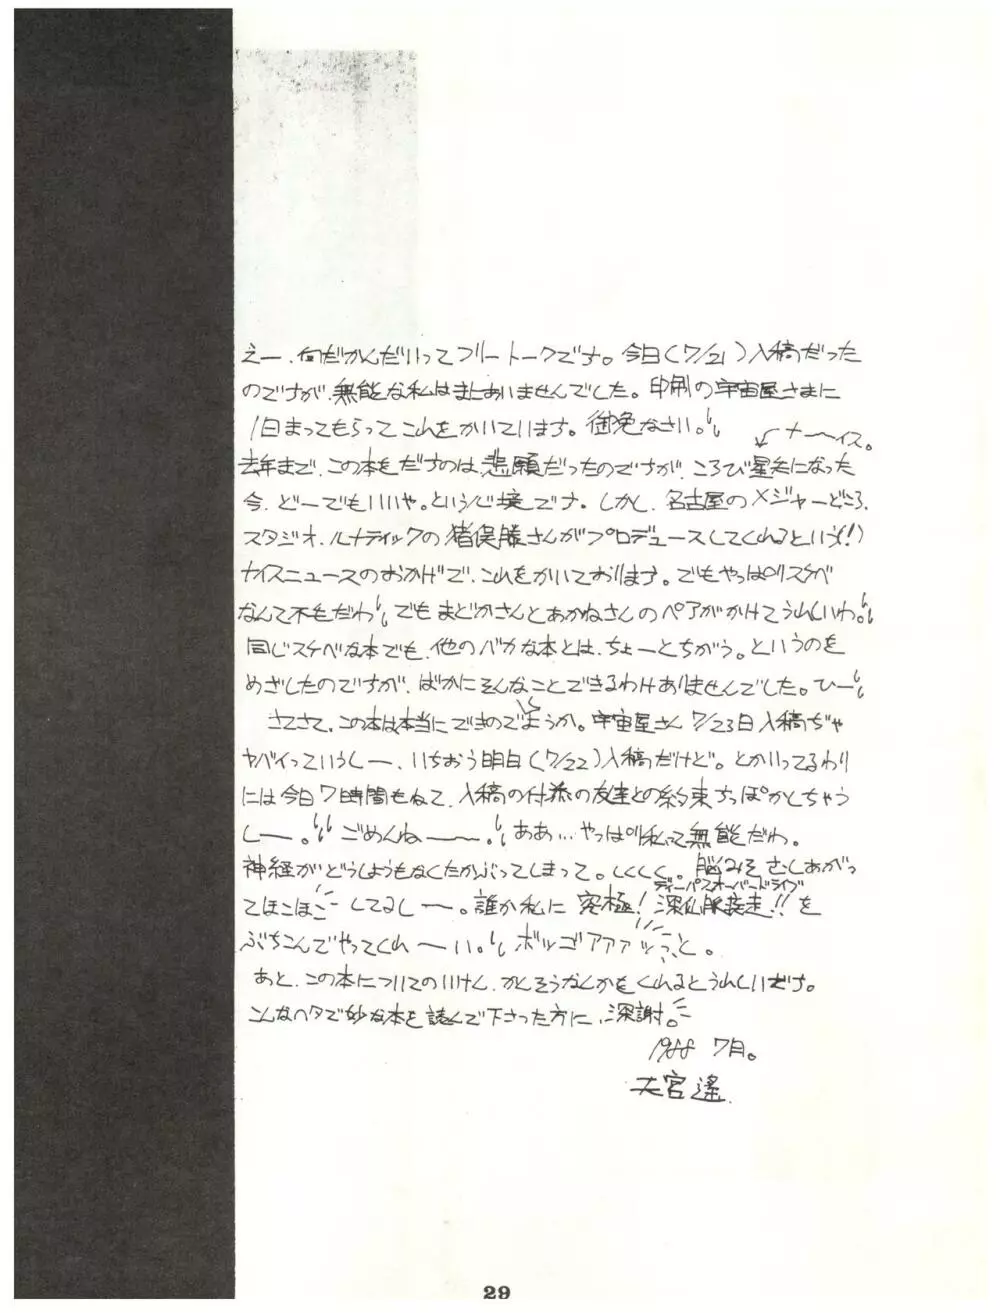 えー、何だかんだいってフリートークです。今日(7/21)入稿だった
のですが、無能な私はまにあいませんでした。印刷の宇宙屋さまに
1日まってもらってこれをかいています。御免なさい。
ナーイス。
去年まで、この本をだすのは、悲願だったのですが、ころび星矢になった
今、どーでもいいや。という心境です。しかし、名古屋のメジャーどころ、
スタジオ、ルナティックの猪俣勝さんがプロデュースしてくれるという(!)
ナイスニュースのおかげで、これをかいております。でもやっぱりスケベ
なんて不毛だわ でもまどかさんとあかねさんのペアがかけてうれしいわ。
同じスケベな本でも、他のバカな本とは、ちょーとちがう。というのを
めざしたのですが、ばかにそんなことできるわけありませんでした。ひー
さてさて、この本は本当にできるのでしょうか。宇宙屋さん 7/23日入稿ぢゃ
ヤバイっていうしー、いちおう明日(7/22)入稿だけど。とかいってるわり
には今日7時間もねて、入稿の付添の友達との約束すっぽかしちゃう
しー。ごめんねー〜。ああ…やっぱり私って無能だわ。
神経がどうしようもなくたかぶってしまって。しくしく。脳みそむしあがっ
てほこほこしてるしー。誰か私に 究極!深仙脈疾走!!を
ディーパスオーバードライブ
ぶちこんでやってくれーい。ボッゴアアアッっと。
あと、この本についてのいけん、かんそうなんかをくれるとうれしいだす。
こんなヘタで妙な本を読んで下さった方に、深謝。
1988 7月。
大宮遥
29